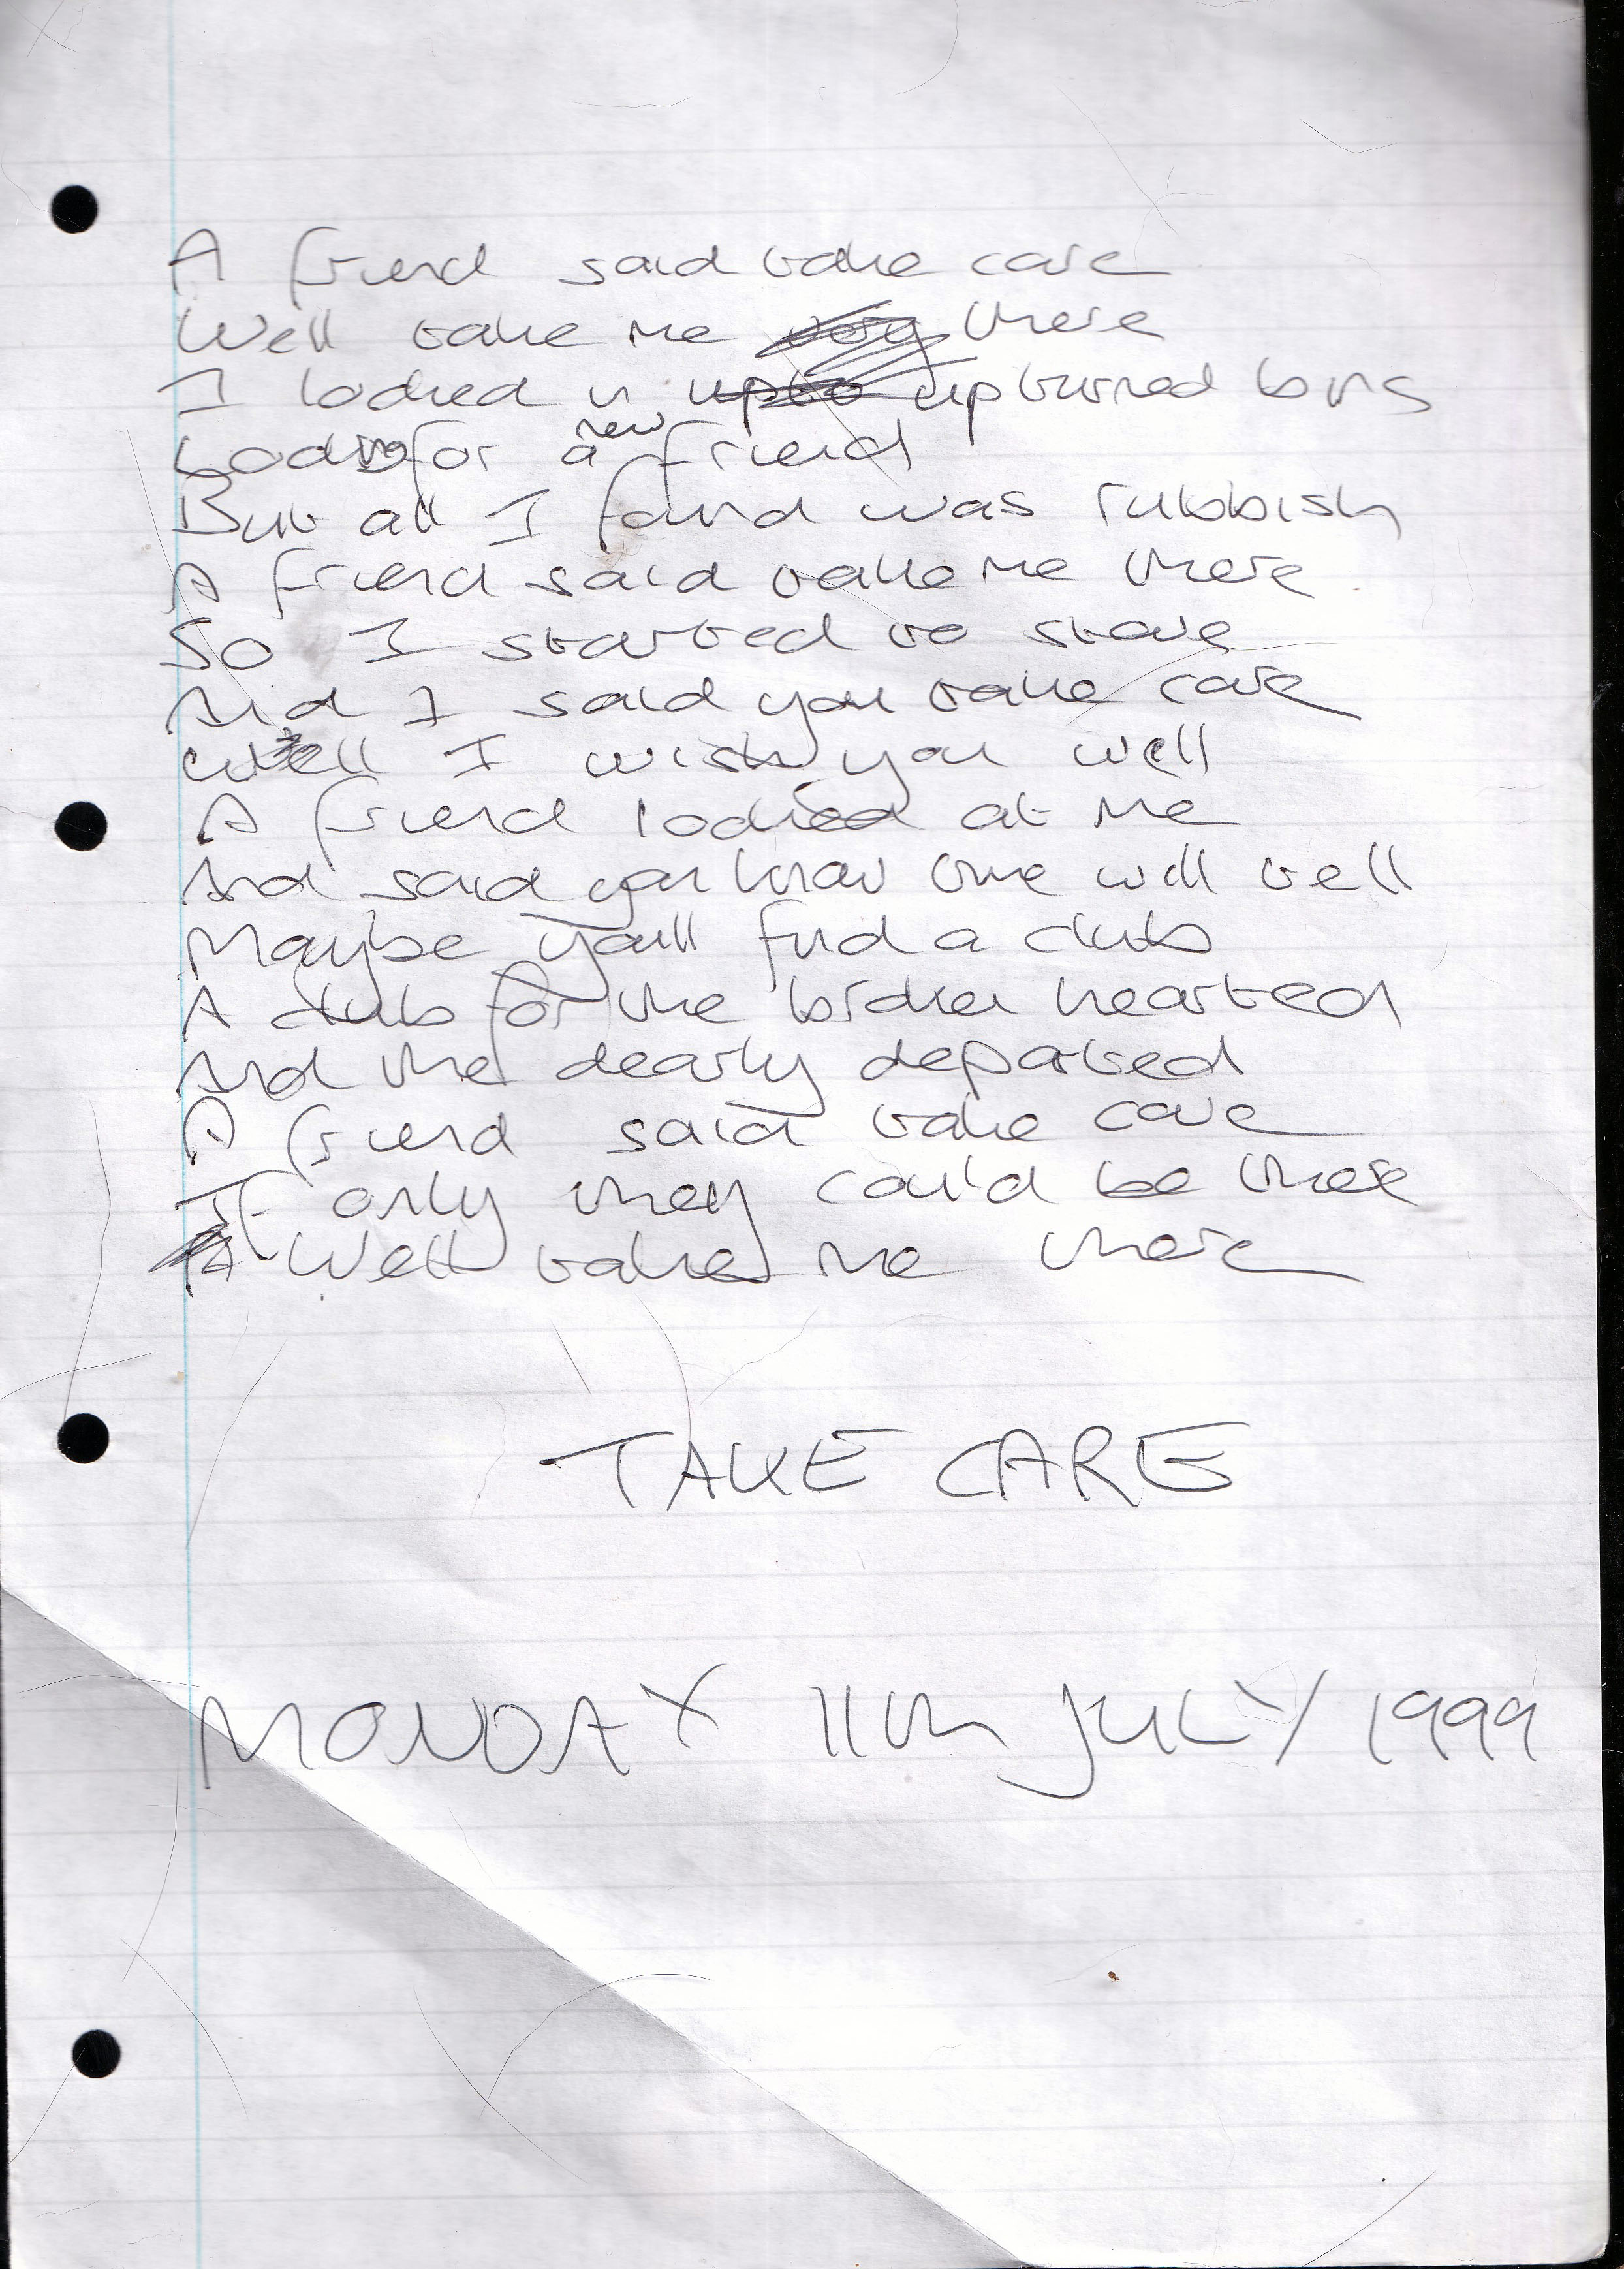 A friend said take care
Well take me there
I looked in upturned bins
Looking for a new friend
But all I found was rubbish
A friend said take me there
So I started to stare
And I said you take care
Well I wish you well
A friend looked at me
And said you know time will tell
Maybe you'll find a club
A club for the broken hearted
And the dearly departed
A friend said take care
If only they could be there
Well take me there
TAKE CARE
MONDAY 11th JULY 1999